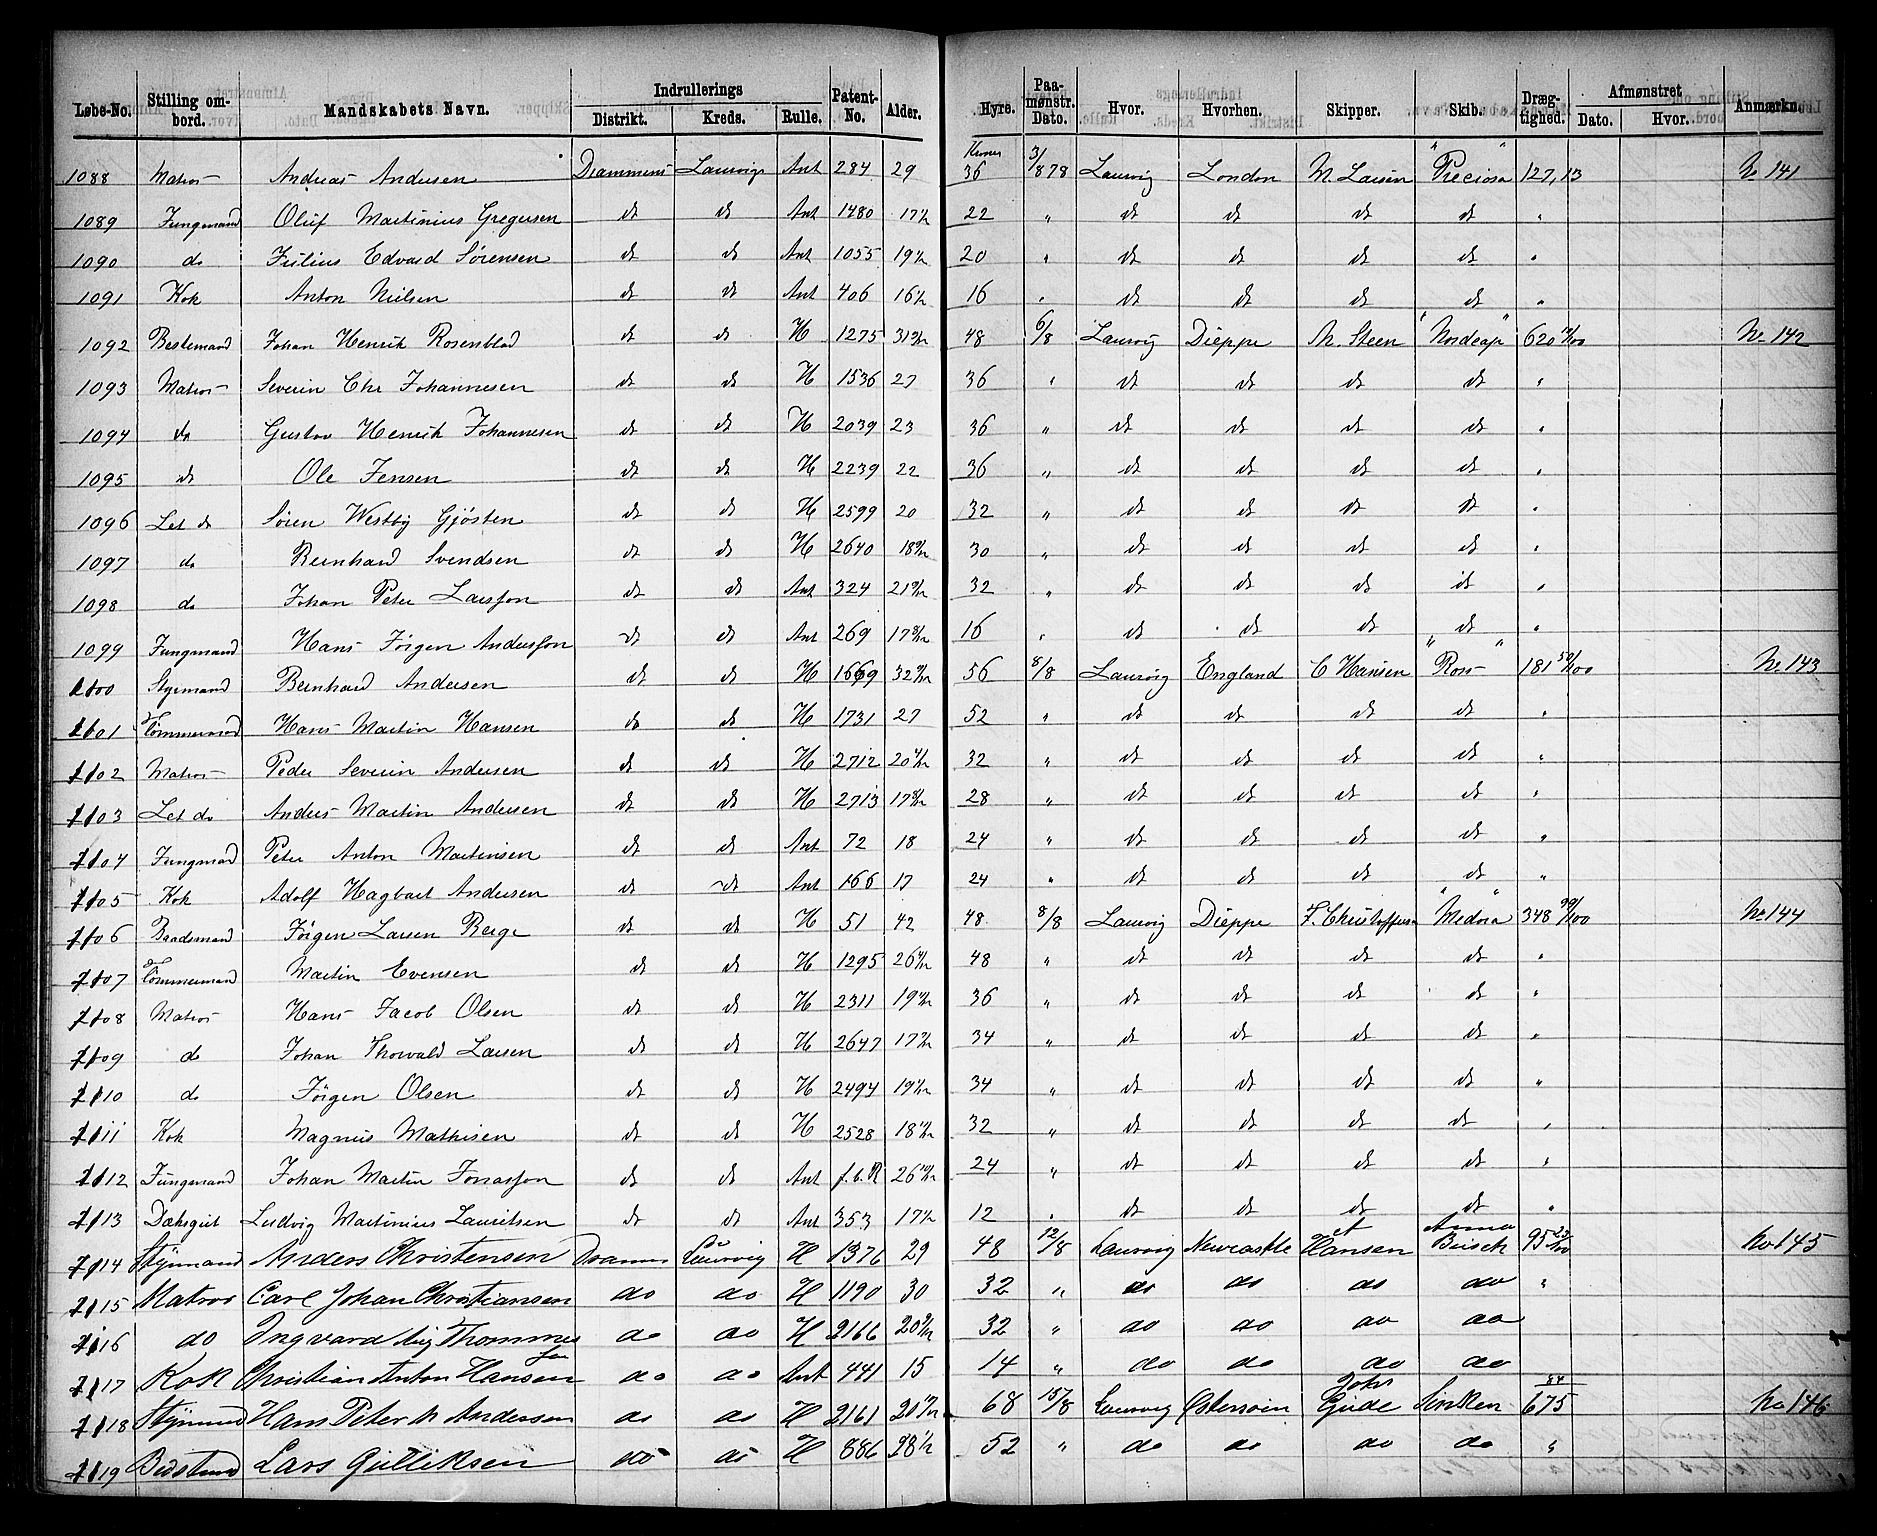 Løbe-No. Stilling ombord. Mandskabets Navn. Indrullerings Distrikt. Kreds. Rulle. Patent-No. Alder. Hyre. Paamønstr. Dato. Hvor. Hvorhen. Skipper. Skib. Drægtighed. Afmønstret Dato. Hvor. Anmærkn.
1088 Matros Andreas Andersen Drammens Laurvigs Ant 284 29 Kroner 36 3/8 78 Laurvig London M. Larsen "Preciosa" 127,13 No 141
1089 Jungmand Oluf Martinius Gregersen dt dt Ant 1480 17 22 " dt dt dt dt "
1090 do Julius Edvard Sørensen dt dt Ant 1055 19 20 " dt dt dt dt "
1091 Kok Anton Nielsen dt dt Ant 406 16 16 " dt dt dt dt "
1092 Bestemand Johan Henrik Rosenblad dt dt H 1275 31 48 6/8 Laurvig Dieppe M. Steen "Nordcap" 620 No 142
1093 Matros Severin Chr Johannesen dt dt H 1536 27 36 " dt dt dt dt "
1094 do Gustav Henrik Johannesen dt dt H 2039 23 36 " dt dt dt dt "
1095 dt Ole Jensen dt dt H 2239 22 36 " dt dt dt dt "
1096 Let do Søren Westby Gjösten dt dt H 2599 20 32 " dt dt dt dt "
1097 do Bernhard Svendsen dt dt H 2640 18 30 " dt dt dt dt "
1098 do Johan Peter Larsson dt dt Ant 324 21 32 " dt dt dt dt "
1099 Jungmand Hans Jörgen Andersson dt dt Ant 269 17 16 " dt dt dt dt "
1100 Styrmand Bernhard Andersen dt dt H 1669 32 56 8/8 Laurvig England C Hansen "Ros" 181 50/100 No 143
1101 Tömmermand Hans Martin Hansen do dt H 1731 27 52 " dt dt dt dt "
1102 Matros Peder Severin Andersen dt dt H 2712 20 32 " dt dt dt dt "
1103 Let do Anders Martin Andersen dt dt H 2713 17 28 " dt dt dt dt "
1104 Jungmand Peter Anton Martinsen dt dt Ant 72 18 24 " dt dt dt dt "
1105 Kok Adolf Hagbart Andersen dt dt Ant 166 17 24 " dt dt dt dt "
1106 Baadsmand Jörgen Larsen Berge dt dt H 51 42 48 8/8 Laurvig Dieppe F. Christoffersen "Medora" 348 No 144
1107 Tömmermand Martin Evensen dt dt H 1295 26 48 " dt dt dt dt "
1108 Matros Hans Jacob Olsen dt dt H 2311 19 36 " dt dt dt dt "
1109 do Johan Thorvald Larsen dt dt H 2647 17 34 " dt dt dt dt "
1110 do Jörgen Olsen dt dt H 2494 19 34 " dt dt dt dt "
1111 Kok Magnus Mathisen dt dt H 2528 18 32 " dt dt dt dt "
1112 Jungmand Johan Martin Jonasson dt dt Ant 26 24 " dt dt dt dt "
1113 Dæksgut Ludvig Martinius Lauritsen dt dt Ant 353 17 12 " dt dt dt dt "
1114 Styrmand Anders Christensen Drammens Laurvig H 1376 29 48 12/8 Laurvig Newcastle Hansen Anna Beisch 95 No 145
1115 Matros Carl Johan Christiansen do do H 1190 30 32 " do do do do "
1116 do Ingvard Thommesen do do H 2166 20 32 " do do do do
1117 Kok Christian Anton Hansen do do Ant 441 15 14 " do do do do
1118 Styrmd Hans Peter Andersen do do H 2161 68 15/8 Laurvig Gude 675 No 146
1119 Lars Gulliksen do do H 886 28 52 " do do do do "